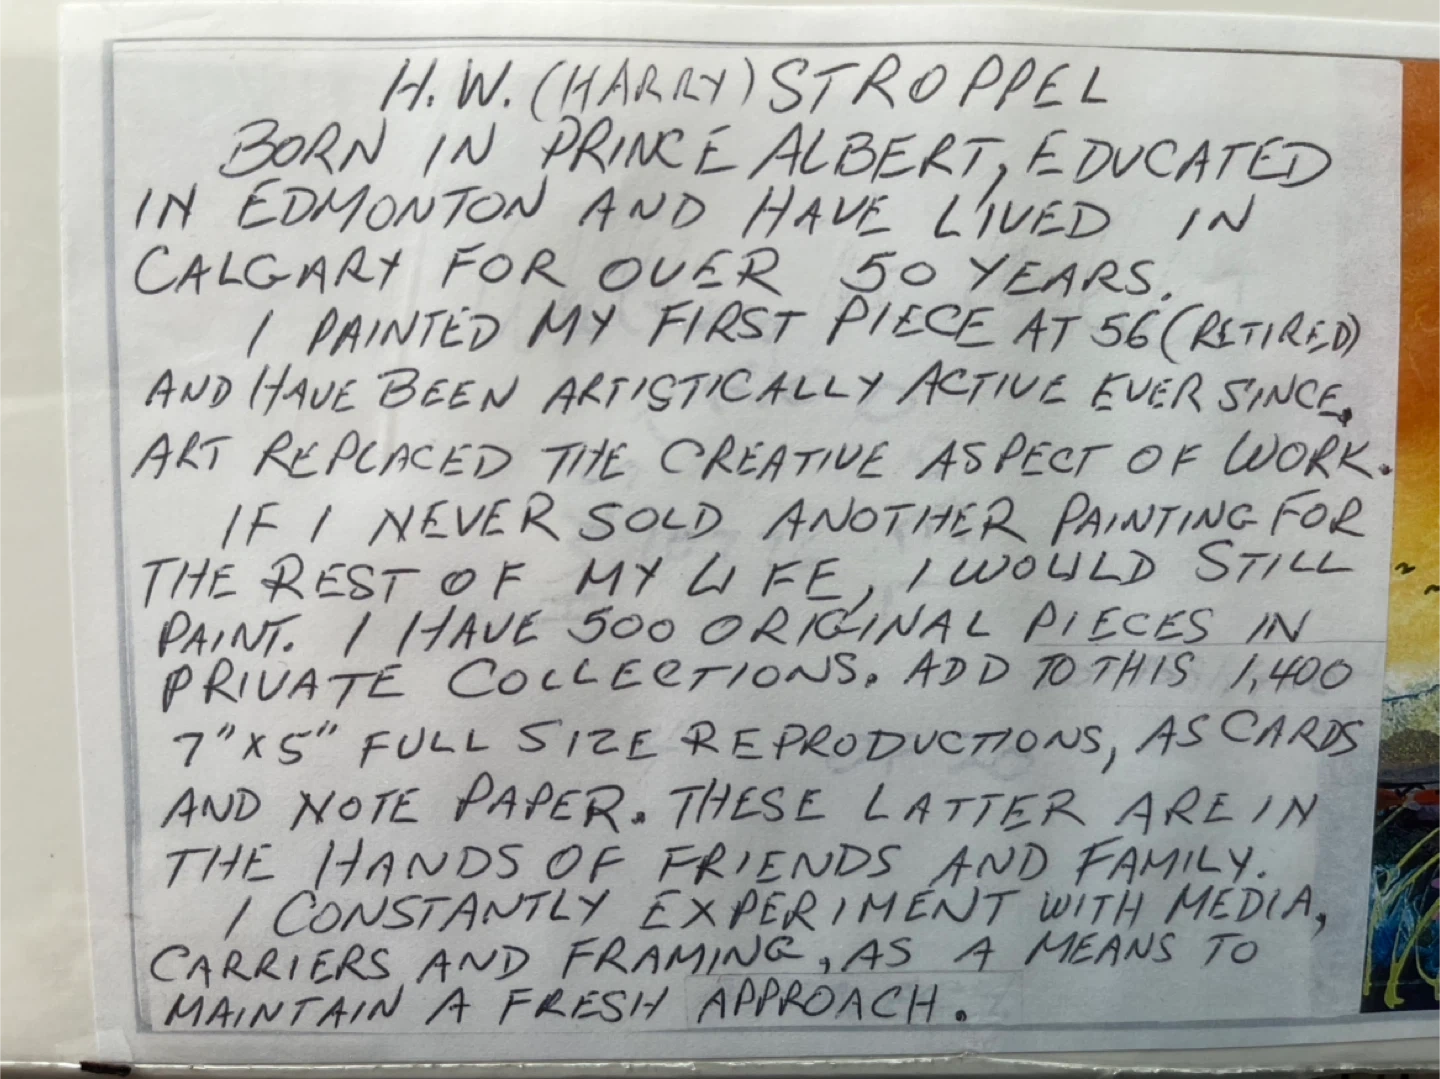 H. W. (HARRY) STROPPEL
BORN IN PRINCE ALBERT, EDUCATED
IN EDMONTON AND HAVE LIVED IN
CALGARY FOR OVER 50 YEARS.
I PAINTED MY FIRST PIECE AT 56 (RETIRED)
AND HAVE BEEN ARTISTICALLY ACTIVE EVER SINCE.
ART REPLACED THE CREATIVE ASPECT OF WORK.
IF I NEVER SOLD ANOTHER PAINTING FOR
THE REST OF MY LIFE, I WOULD STILL
PAINT. I HAVE 500 ORIGINAL PIECES IN
PRIVATE COLLECTIONS. ADD TO THIS 1,400
7" X 5" FULL SIZE REPRODUCTIONS, AS CARDS
AND NOTE PAPER. THESE LATTER ARE IN
THE HANDS OF FRIENDS AND FAMILY.
I CONSTANTLY EXPERIMENT WITH MEDIA,
CARRIERS AND FRAMING, AS A MEANS TO
MAINTAIN A FRESH APPROACH.